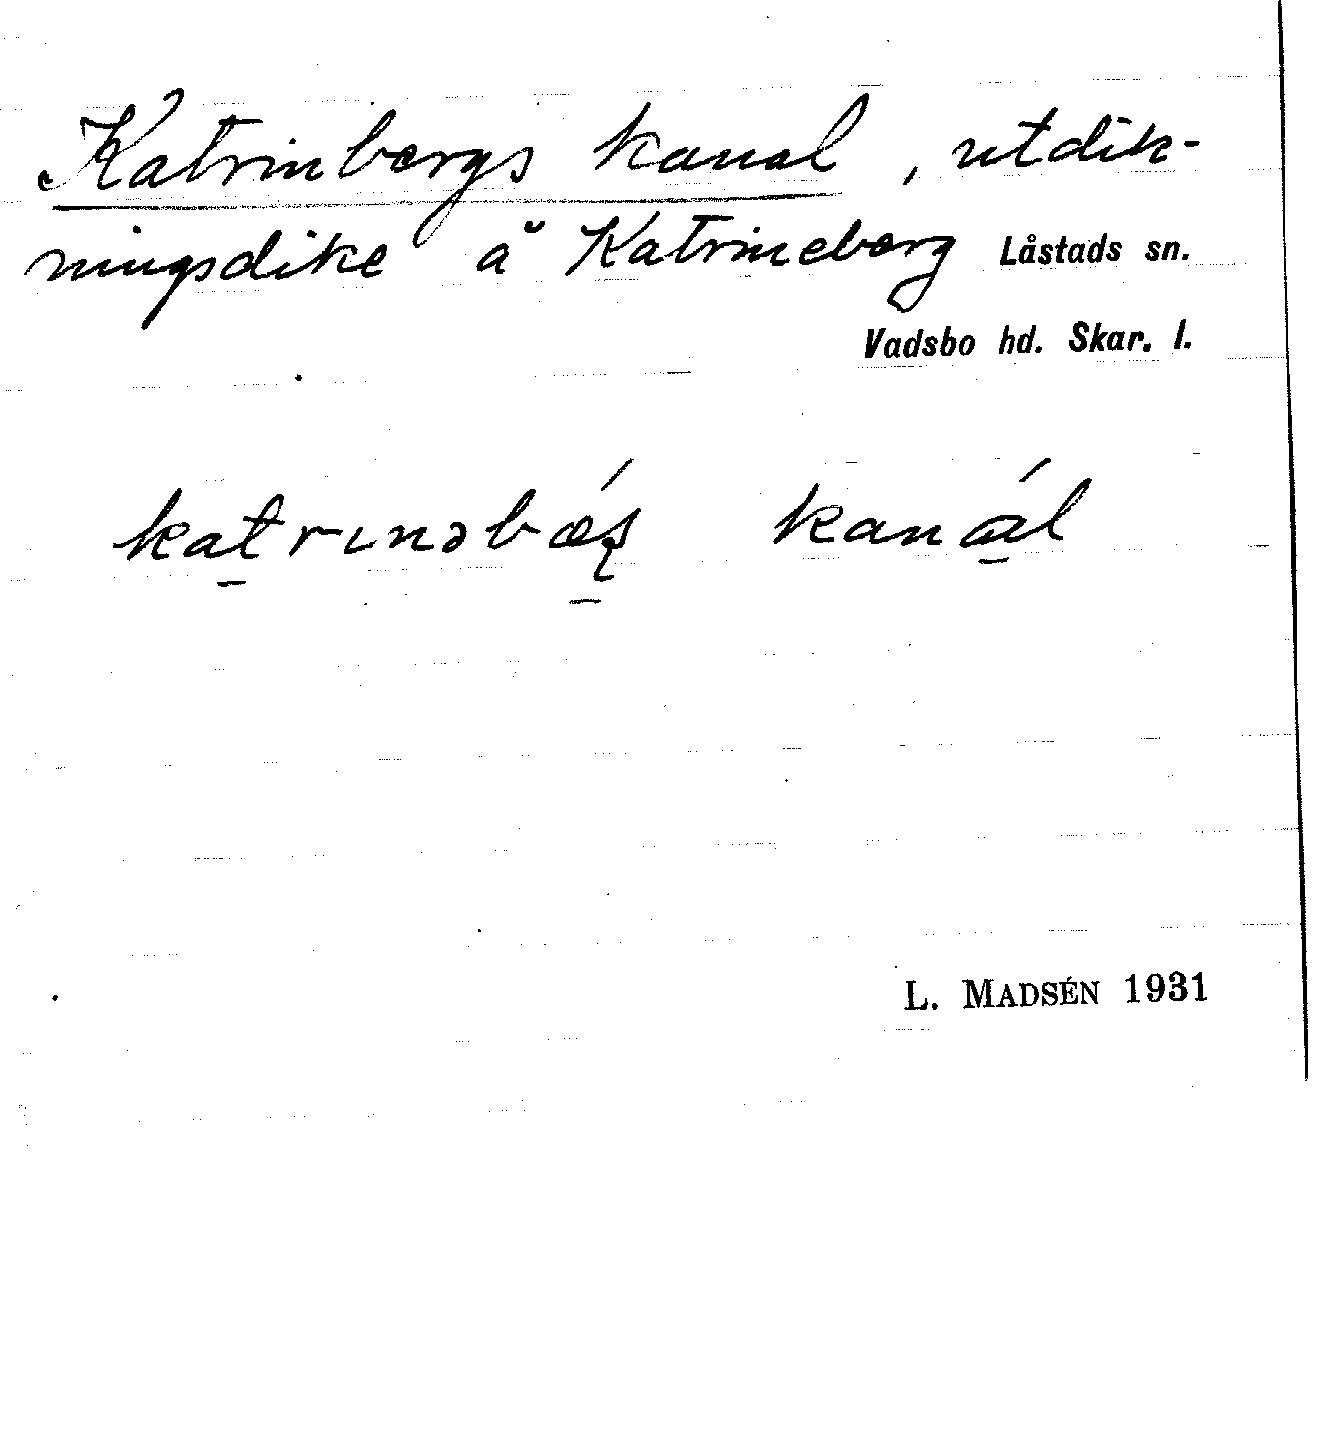 Katrinbergs kanal, utdik-
ningsdike å Katrineberg Låstads sn.
Vadsbo hd. Skar. l.
katrɩnəbǽʂ kanál
L. MADSÉN 1931